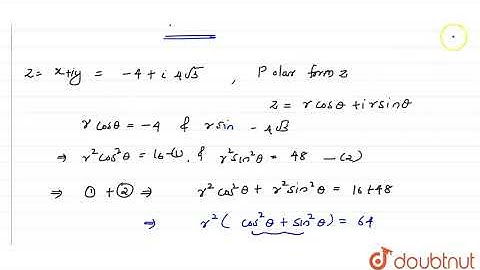 z = x+iy = -4 + i 4√3 , Polar form z
z = r cosθ + i r sinθ
r cosθ = -4 & r sin - 4√3
⇒ r²cos²θ = 16 -(1) , & r²sin²θ = 48 -(2)
⇒ ① + ② ⇒ r²cos²θ + r²sin²θ = 16+48
⇒ r²( cos²θ + sin²θ) = 64
doubtnut